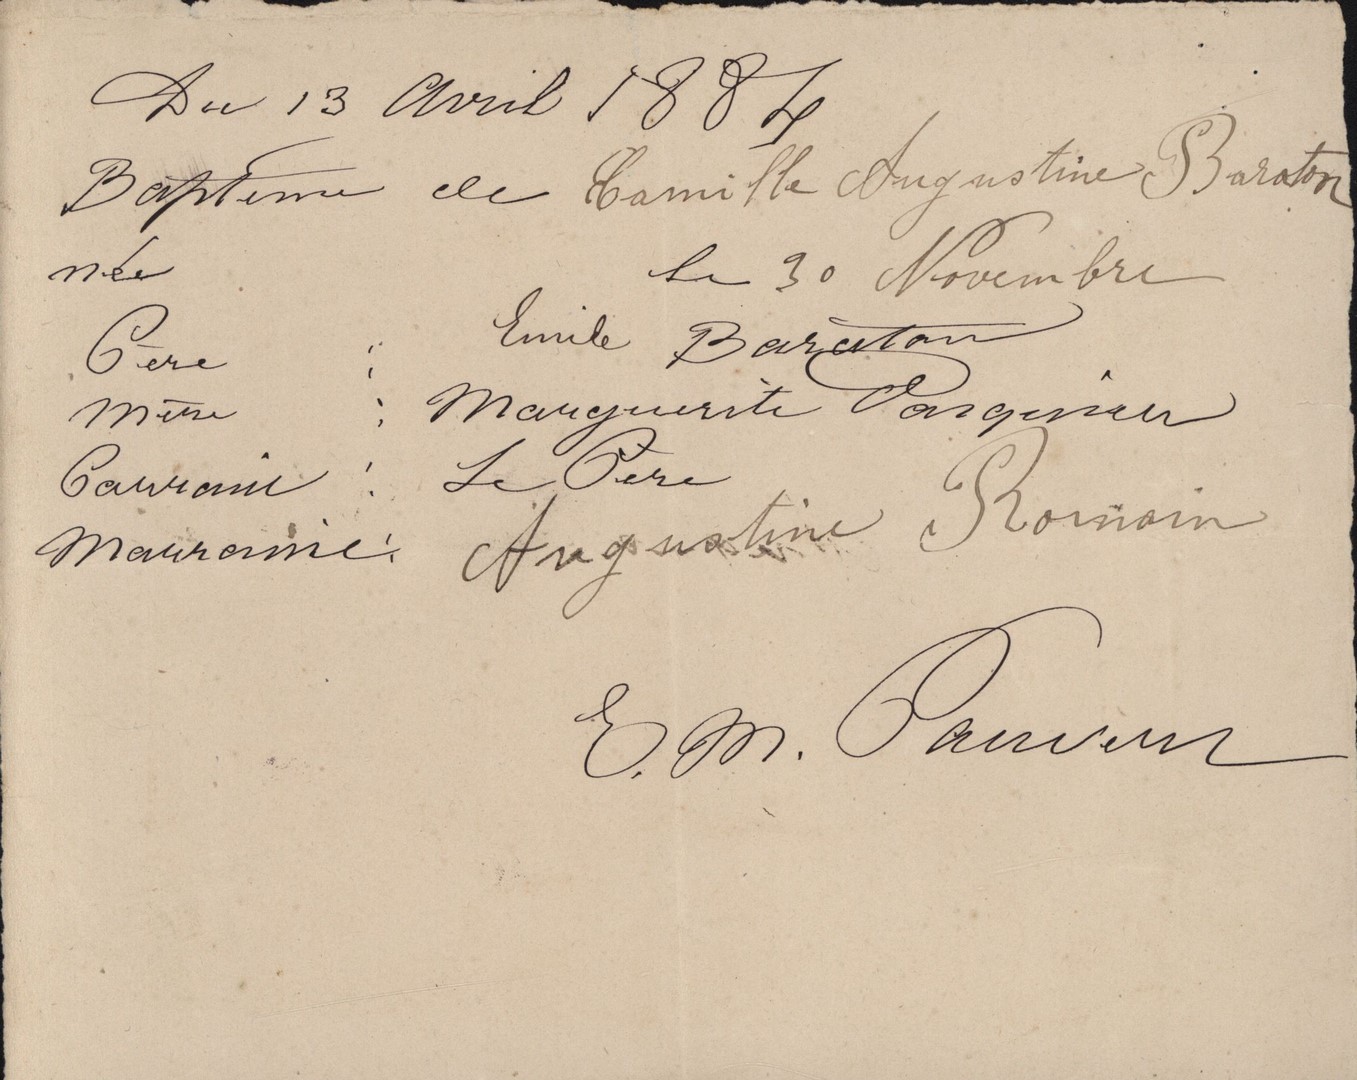 Du 13 Avril 1884
Baptême de Camille Augustine Baraton
née le 30 Novembre
Père : Emile Baraton
Mère : Marguerite
Parrain : Le Père
Marraine : Augustine Romain
E. M.